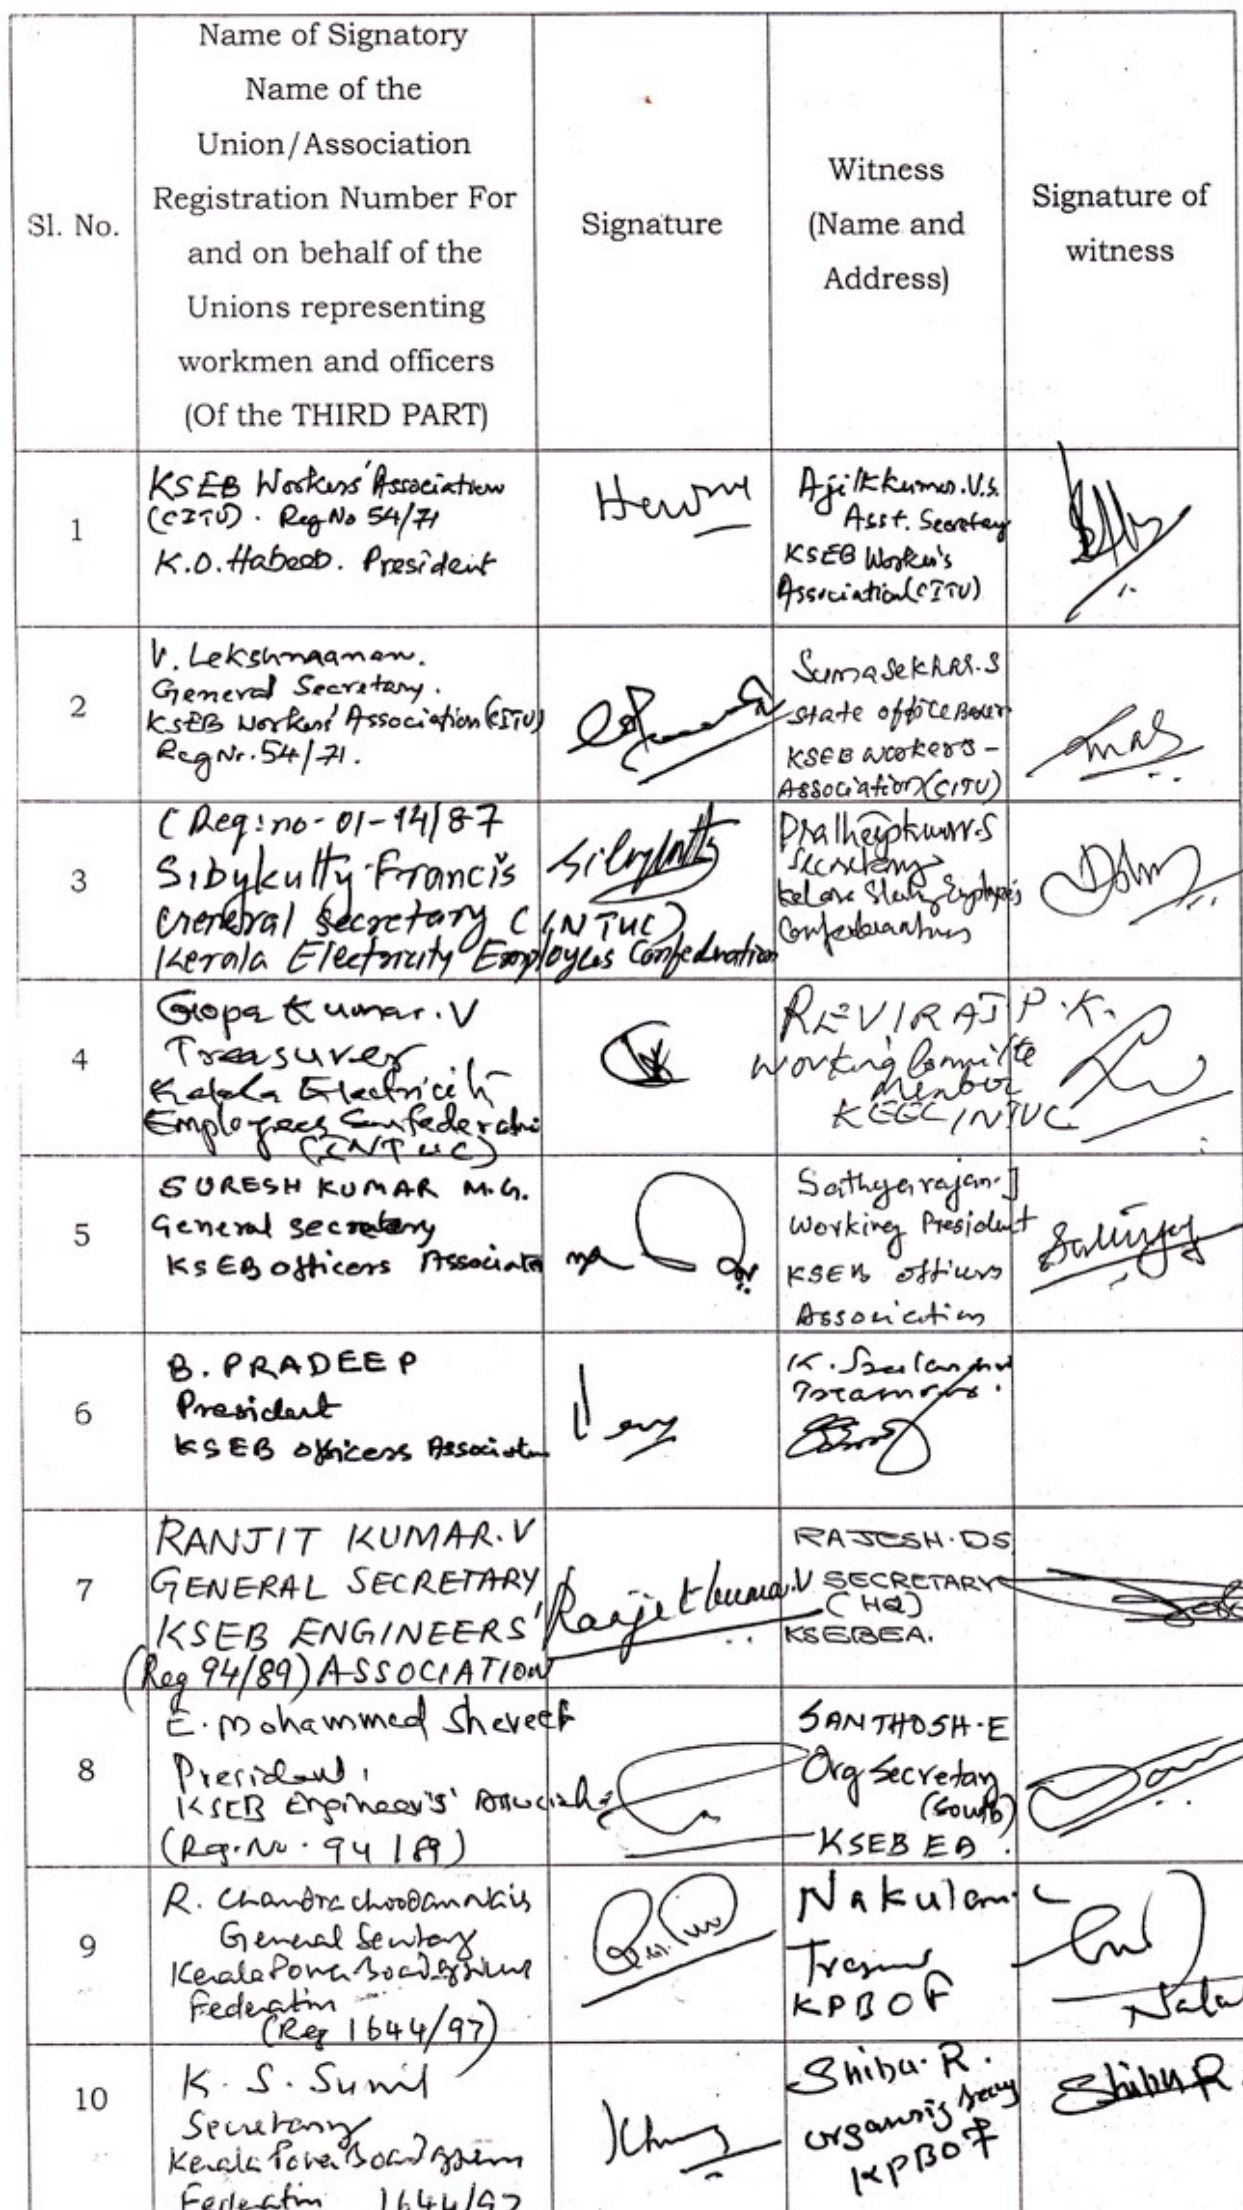 Sl. No.
Name of Signatory
Name of the
Union/Association
Registration Number For
and on behalf of the
Unions representing
workmen and officers
(Of the THIRD PART)
Signature
Witness
(Name and
Address)
Signature of
witness
1
KSEB Workers' Association
(CITU). Reg No 54/71
K.O. Habeeb. President
Ajilkkumar.V.S.
Asst. Secretary
KSEB Worker's
Association (CITU)
2
V. Lekshmaanan.
General Secretary.
KSEB Workers' Association (CITU)
Reg Nr. 54/71.
Sumasekhar.S
State office Barer
KSEB workers-
Association (CITU)
3
(Reg:no-01-14/87
Sibykutty Francis
General Secretary (INTUC)
Kerala Electricity Employees Confederation
Secretary
4
Gopa Kumar.V
Treasurer
Kerala Electricity
Employees Confederation
(INTUC)
REVIRAJ P.K.
Working Committe
Member
KEEC INTUC
5
SURESH KUMAR M.G.
General secretary
KSEB officers Association
Sathyarajan.J
Working President
KSEB officers
Association
6
B. PRADEEP
President
KSEB officers Association
K.
7
RANJIT KUMAR.V
GENERAL SECRETARY
KSEB ENGINEERS'
(Reg 94/89) ASSOCIATION
Ranjetkumar.V
RAJESH.DS
SECRETARY
(HQ)
KSEBEA.
8
E. Mohammed Shereef
President,
KSEB Engineer's' Association
(Reg.No. 94/89)
SANTHOSH.E
Org Secretary
(South)
KSEB EA.
9
R. Chandrachoodan Nair
General Secretary
Kerala Power Board officers
Federation
(Reg 1644/97)
Nakulan.
KPBOF
10
K. S. Sunil
Secretary
Kerala Power Board officers
Federation 1644/97
Shibu.R.
KPBOF
Shibu R.